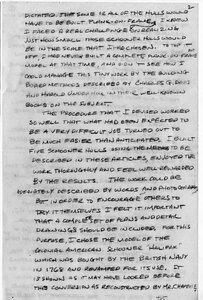 2
DICTATED THE SAME 12 ALL OF THE HULLS WOULD
HAVE TO BE BUILT PLANK-ON-FRAME. I KNEW
I FACED A REAL CHALLENGE IN REALIZING
JUST HOW SMALL THOSE SCHOONER HULLS WOULD
BE IN THE SCALE THAT I'D CHOSEN. TO TOP IT
OFF, I HAD NEVER BUILT A COMPLETE PLANK-ON-FRAME
MODEL AT THAT TIME, AND DIDN'T SEE HOW I
COULD MANAGE THIS TINY WORK BY THE BUILDING
BOARD METHODS DESCRIBED BY CHARLES G. DAVIS
AND HAROLD HAHN IN THEIR WELL KNOWN
BOOKS ON THE SUBJECT.
THE PROCEDURE THAT I DEVISED WORKED
SO WELL THAT WHAT HAD BEEN EXPECTED TO
BE A VERY DIFFICULT JOB TURNED OUT TO
BE MUCH EASIER THAN ANTICIPATED. I BUILT
FIVE SCHOONER HULLS USING THE METHODS TO BE
DESCRIBED IN THESE ARTICLES, ENJOYED THE
WORK THOROUGHLY AND FEEL WELL REWARDED
BY THE RESULTS. THE WORK COULD BE
ADEQUATELY DESCRIBED BY WORDS AND PHOTOGRAPHS
BUT IN ORDER TO ENCOURAGE OTHERS TO
TRY IT THEMSELVES I FELT IT IMPORTANT
THAT A COMPLETE SET OF PLANS AND DETAIL
DRAWINGS SHOULD BE INCLUDED. FOR THIS
PURPOSE, I CHOSE THE MODEL OF THE
COLONIAL AMERICAN SCHOONER HALIFAX
WHICH WAS BOUGHT BY THE BRITISH NAVY
IN 1768 AND REWORKED FOR ITS USE. IT
IS SHOWN AS IT MAY HAVE LOOKED BEFORE
THIS CONVERSION AS RECONSTRUCTED BY MR. CHAPELLE